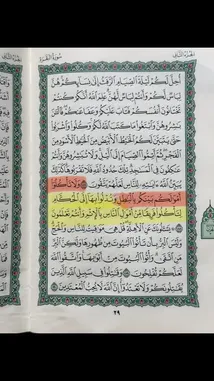 الجزء الثاني
سورة البقرة
أُحِلَّ لَكُمْ لَيْلَةَ ٱلصِّيَامِ ٱلرَّفَثُ إِلَىٰ نِسَآئِكُمْ هُنَّ
لِبَاسٌ لَّكُمْ وَأَنتُمْ لِبَاسٌ لَّهُنَّ عَلِمَ ٱللَّهُ أَنَّكُمْ كُنتُمْ
تَخْتَانُونَ أَنفُسَكُمْ فَتَابَ عَلَيْكُمْ وَعَفَا عَنكُمْ فَٱلْـَٰٔنَ
بَـٰشِرُوهُنَّ وَٱبْتَغُوا۟ مَا كَتَبَ ٱللَّهُ لَكُمْ وَكُلُوا۟ وَٱشْرَبُوا۟
حَتَّىٰ يَتَبَيَّنَ لَكُمُ ٱلْخَيْطُ ٱلْأَبْيَضُ مِنَ ٱلْخَيْطِ ٱلْأَسْوَدِ مِنَ
ٱلْفَجْرِ ثُمَّ أَتِمُّوا۟ ٱلصِّيَامَ إِلَى ٱلَّيْلِ وَلَا تُبَـٰشِرُوهُنَّ وَأَنتُمْ
عَـٰكِفُونَ فِى ٱلْمَسَـٰجِدِ تِلْكَ حُدُودُ ٱللَّهِ فَلَا تَقْرَبُوهَا كَذَٰلِكَ
يُبَيِّنُ ٱللَّهُ ءَايَـٰتِهِۦ لِلنَّاسِ لَعَلَّهُمْ يَتَّقُونَ وَلَا تَأْكُلُوٓا۟
أَمْوَٰلَكُم بَيْنَكُم بِٱلْبَـٰطِلِ وَتُدْلُوا۟ بِهَآ إِلَى ٱلْحُكَّامِ
لِتَأْكُلُوا۟ فَرِيقًا مِّنْ أَمْوَٰلِ ٱلنَّاسِ بِٱلْإِثْمِ وَأَنتُمْ تَعْلَمُونَ
يَسْـَٔلُونَكَ عَنِ ٱلْأَهِلَّةِ قُلْ هِىَ مَوَٰقِيتُ لِلنَّاسِ وَٱلْحَجِّ
وَلَيْسَ ٱلْبِرُّ بِأَن تَأْتُوا۟ ٱلْبُيُوتَ مِن ظُهُورِهَا وَلَـٰكِنَّ ٱلْبِرَّ
مَنِ ٱتَّقَىٰ وَأْتُوا۟ ٱلْبُيُوتَ مِنْ أَبْوَٰبِهَا وَٱتَّقُوا۟ ٱللَّهَ
لَعَلَّكُمْ تُفْلِحُونَ وَقَـٰتِلُوا۟ فِى سَبِيلِ ٱللَّهِ ٱلَّذِينَ
يُقَـٰتِلُونَكُمْ وَلَا تَعْتَدُوٓا۟ إِنَّ ٱللَّهَ لَا يُحِبُّ ٱلْمُعْتَدِينَ
٢٩